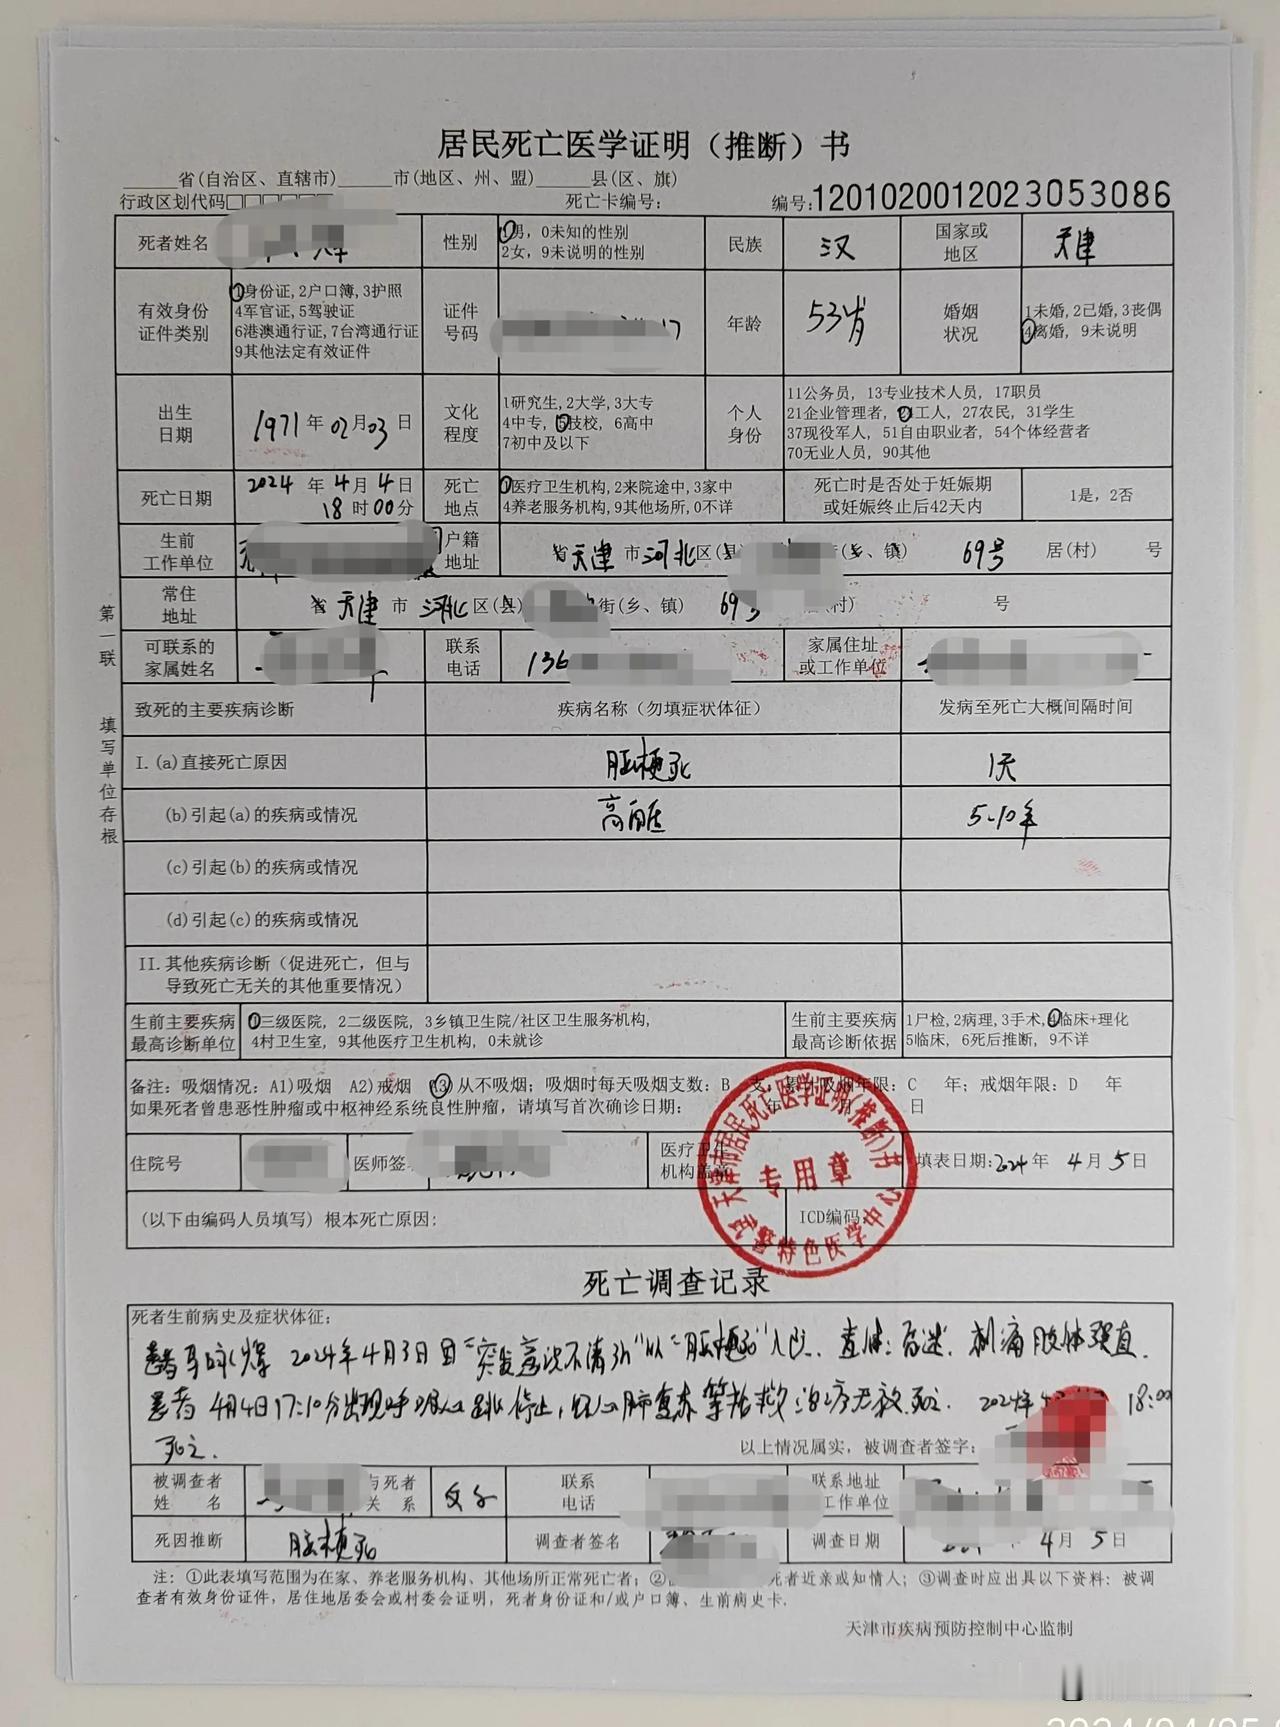 居民死亡医学证明（推断）书
省(自治区、直辖市) 市(地区、州、盟) 县(区、旗)
行政区划代码□□□□□□ 死亡卡编号: 编号:1201020012023053086
死者姓名 性别 1男, 0未知的性别 2女, 9未说明的性别 民族 汉 国家或地区 天津
有效身份证件类别 1身份证, 2户口簿, 3护照 4军官证, 5驾驶证 6港澳通行证, 7台湾通行证 9其他法定有效证件 证件号码 17 年龄 53岁 婚姻状况 1未婚, 2已婚, 3丧偶 4离婚, 9未说明
出生日期 1971年02月03日 文化程度 1研究生, 2大学, 3大专 4中专, 5技校, 6高中 7初中及以下 个人身份 11公务员, 13专业技术人员, 17职员 21企业管理者, 工人, 27农民, 31学生 37现役军人, 51自由职业者, 54个体经营者 70无业人员, 90其他
死亡日期 2024年4月4日 18时00分 死亡地点 1医疗卫生机构, 2来院途中, 3家中 4养老服务机构, 9其他场所, 0不详 死亡时是否处于妊娠期或妊娠终止后42天内 1是, 2否
生前工作单位 户籍地址 省 天津 市 河北 区(县) (乡、镇) 69号 居(村) 号
常住地址 省 天津 市 河北 区(县) 街(乡、镇) 69号 (村) 号
可联系的家属姓名 联系电话 136 家属住址或工作单位
致死的主要疾病诊断 疾病名称（勿填症状体征） 发病至死亡大概间隔时间
I.(a)直接死亡原因 脑梗死 1天
(b)引起(a)的疾病或情况 高血压 5-10年
(c)引起(b)的疾病或情况
(d)引起(c)的疾病或情况
II.其他疾病诊断（促进死亡，但与导致死亡无关的其他重要情况）
生前主要疾病最高诊断单位 1三级医院, 2二级医院, 3乡镇卫生院/社区卫生服务机构, 4村卫生室, 9其他医疗卫生机构, 0未就诊 生前主要疾病最高诊断依据 1尸检, 2病理, 3手术, 4临床+理化 5临床, 6死后推断, 9不详
备注: 吸烟情况: A1)吸烟 A2)戒烟 A3)从不吸烟; 吸烟时每天吸烟支数: B 支; 累计吸烟年限: C 年; 戒烟年限: D 年
如果死者曾患恶性肿瘤或中枢神经系统良性肿瘤, 请填写首次确诊日期: 年 月 日
住院号 医师签 医疗卫生机构盖章 填表日期:2024年4月5日
天津市居民死亡医学证明(推断)书
专用章
武警特色医学中心
(以下由编码人员填写) 根本死亡原因: ICD编码:
死亡调查记录
死者生前病史及症状体征:
患者 2024年4月3日因"突发意识不清3h"以"脑梗死"入院. 查体: 昏迷. 刺痛肢体强直.
患者4月4日17:10分出现呼吸心跳停止, 经心肺复苏等抢救治疗无效死亡. 2024年4 18:00
死亡. 以上情况属实, 被调查者签字:
被调查者姓 名 与死者关 系 父子 联系电话 联系地址工作单位
死因推断 脑梗死 调查者签名 调查日期 4月5日
注: ①此表填写范围为在家、养老服务机构、其他场所正常死亡者; ② 死者近亲或知情人; ③调查时应出具以下资料: 被调
查者有效身份证件, 居住地居委会或村委会证明, 死者身份证和/或户口簿、生前病史卡.
天津市疾病预防控制中心监制
第一联 填写单位存根